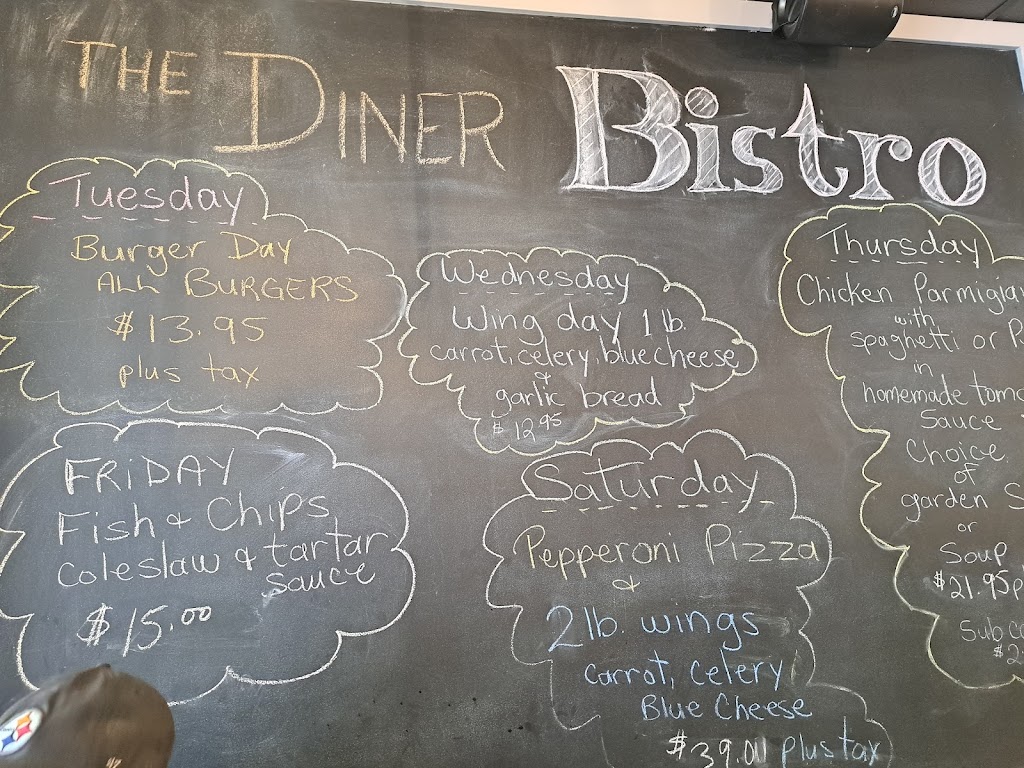 THE DINER Bistro
Tuesday
Burger Day
ALL BURGERS
$13.95
plus tax
Wednesday
Wing day 1 lb.
carrot, celery, blue cheese
&
garlic bread
$12.95
Thursday
Chicken
with
spaghetti or
in
homemade
Sauce
Choice
of
garden
or
Soup
$21.95
Sub
FRiDAY
Fish & Chips
Coleslaw & tartar
sauce
$15.00
Saturday
Pepperoni Pizza
&
2 lb. wings
Carrot, Celery
Blue Cheese
plus tax